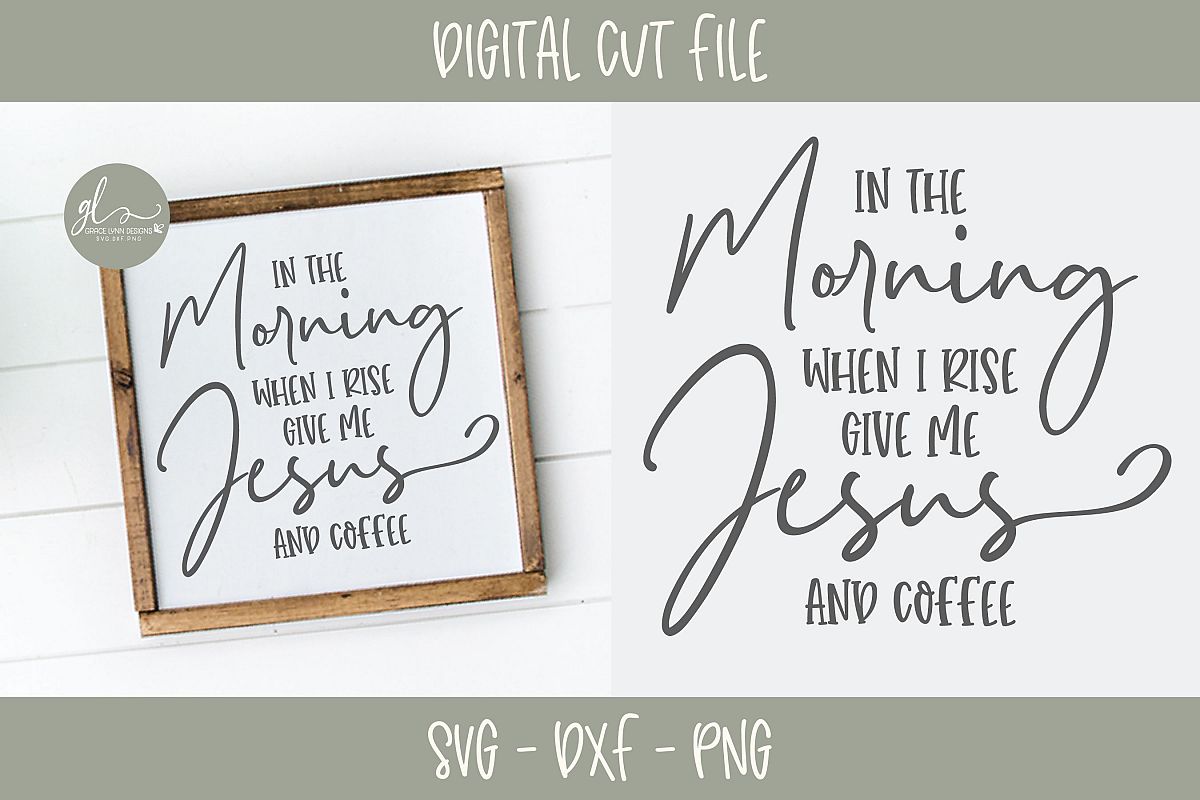 DIGITAL CUT FILE
gl
GRACE LYNN DESIGNS
SVG.DXF.PNG
IN THE
Morning
WHEN I RISE
GIVE ME
Jesus
AND COFFEE
IN THE
Morning
WHEN I RISE
GIVE ME
Jesus
AND COFFEE
SVG - DXF - PNG